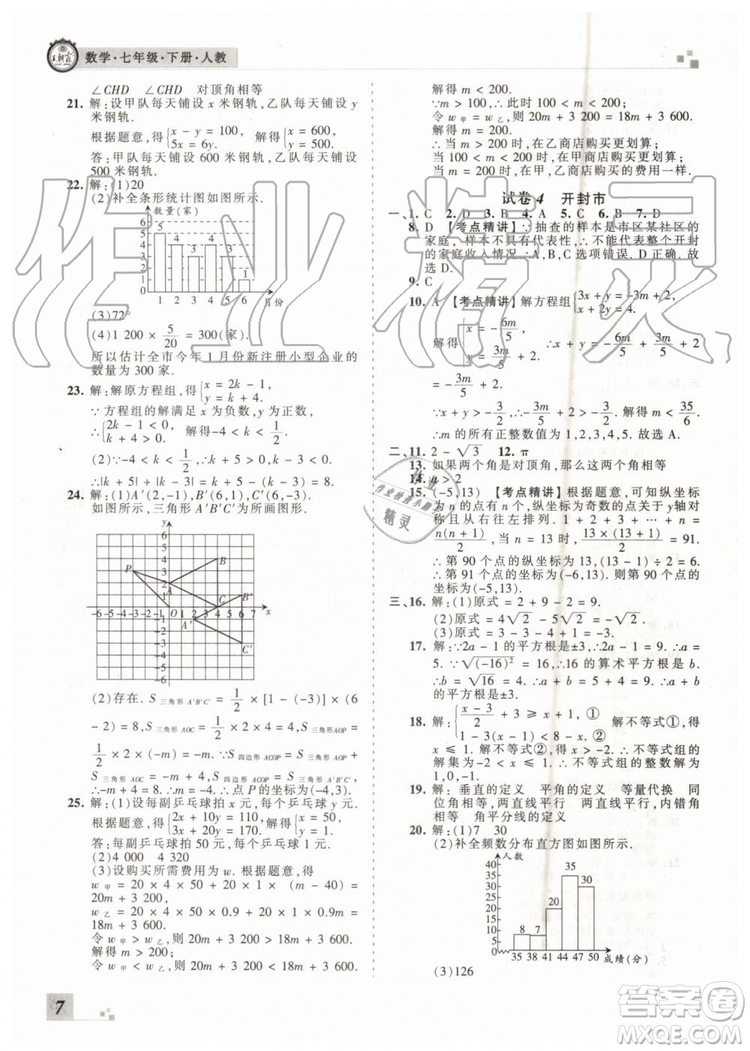 王朝霞
数学·七年级·下册·人教
∠CHD ∠CHD 对顶角相等
21. 解:设甲队每天铺设 x 米钢轨,乙队每天铺设 y
米钢轨.
根据题意,得{x - y = 100, 5x = 6y. 解得{x = 600, y = 500.
答:甲队每天铺设 600 米钢轨,乙队每天铺设
500 米钢轨.
22. 解:(1)20
(2)补全条形统计图如图所示.
数量(家)
5 4 3 2 1 0
5 4 3 4 3 1
1 2 3 4 5 6 月份
(3)72°
(4)1 200 × 5/20 = 300(家).
所以估计全市今年 1 月份新注册小型企业的
数量为 300 家.
23. 解:解原方程组,得{x = 2k - 1, y = k + 4.
∵方程组的解满足 x 为负数,y 为正数,
∴{2k - 1 < 0, k + 4 > 0. 解得 -4 < k < 1/2.
(2)∵ -4 < k < 1/2,
∴|k + 5| + |k - 1| = k + 5 + 1 - k = 6.
24. 解:(1)A′(2,-1),B′(6,1),C′(6,-3).
如图所示,三角形 A′B′C′为所画图形.
y
6 5 4 3 2 1
-6 -5 -4 -3 -2 -1 O 1 2 3 4 5 6 x
P A B C A′ B′ C′
(2)存在. S三角形 A′B′C′ = 1/2 × [1 - (-3)] × (6
- 2) = 8. S四边形 AOCP = S三角形 AOC + S三角形 AOP,
S三角形 AOC = 1/2 × 2 × 4 = 4, S三角形 AOP =
1/2 × 2 × (-m) = -m. ∵ S四边形 AOCP = S三角形 A′B′C′,
∴ -m + 4 = 8. ∴ m = -4. ∴点 P 的坐标为(-4,3).
25. 解:(1)设每副乒乓球拍 x 元,每个乒乓球 y 元.
根据题意,得{2x + 10y = 110, 3x + 20y = 170. 解得{x = 50, y = 1.
答:每副乒乓球拍 50 元,每个乒乓球 1 元.
(2)4 000 4 320
(3)设购买所需费用为 w. 根据题意,得
w甲 = 20 × 4 × 50 + 20 × (m - 40) = 20m + 3 200.
w乙 = 20 × 4 × 50 × 0.9 + 20m × 0.9 = 18m + 3 600.
令 w甲 > w乙,则 20m + 3 200 > 18m + 3 600.
解得 m > 200.
令 w甲 < w乙,则 20m + 3 200 < 18m + 3 600.
7
解得 m < 200.
∵ m > 100, ∴此时 100 < m < 200.
令 w甲 = w乙,则 20m + 3 200 = 18m + 3 600.
解得 m = 200.
∴当 m > 200 时,在乙商店购买更划算;
当 100 < m < 200 时,在甲商店购买更划算;
当 m = 200 时,在两商店购买的费用一样.
试卷 4 开封市
一、1. C 2. D 3. B 4. A 5. C 6. C 7. B
8. D 【考点精讲】∵抽查的样本是市区某社区的
家庭,所以推断不合理,不能代表整个开封
的家庭收入情况.∴C 选项错误. D 正确.
故选 D.
9. C
10. A 【考点精讲】解方程组{3x + y = -3m, x + 3y = m + 2.
得{x = -6m/5, y = 3m/5. ∴ x + y = -6m/5 + 3m/5 =
-3m/5. ∵ x + y > -4, ∴ -3m/5 > -4. ∴ m < 35/6.
∴ m 的所有正整数值有 1,2,3,4,5. 故选 A.
二、11. 2 - √3 12. π
13. 如果两个角是对顶角,那么这两个角相等
14. p > 2
15. (-5,13) 【考点精讲】根据题意,可知纵坐标
为 n 的点有 n 个,纵坐标为奇数的点关于 y 轴对
称,且从右往左排列. ∴ 1 + 2 + 3 + … + n
= n(n + 1)/2. 当 n = 13 时,13 × (13 + 1)/2 = 91.
∴第 90 个点的纵坐标为 13,第 91 个点的坐
标为(-6,13).
∴第 90 个点的坐标为(-5,13).
三、16. 解:(1)原式 =
(2)原式 = 4√2 - 5√2 = -√2.
(3)原式 = 3 - 3 - 4 = -4.
17. 解:∵ 2a - 1 的平方根是±3, ∴ 2a - 1 = 9.
∴ a = 5. ∵ √(-16)² = 16, ∴ 16 的算术平方根为
b. ∴ b = √16 = 4. ∴ a + b = 5 + 4 = 9.
18. 解:{(x - 3)/2 + 3 ≥ x + 1,① 1 - 3(x - 1) < 8 - x.② 解不等式①,得
x ≤ 1. 解不等式②,得 x > -2. ∴不等式组的
解集为 -2 < x ≤ 1. ∴不等式组的整数解为 -
1,0,1.
19. 解:垂直的定义 平角的定义 等量代换 同
位角相等,两直线平行 两直线平行,内错角
相等 角平分线的定义
20. 解:(1)7 30
(2)补全频数分布直方图如图所示.
人数
40 35 30 25 20 15 10 5 0
35 38 41 44 47 50 成绩(分)
(3)126
作业精灵
答案圈
MXQE.COM